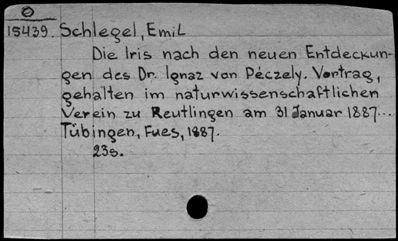 O
15439. Schlegel, Emil
Die Iris nach den neuen Entdeckun-
gen des Dr. Ignaz von Péczely. Vortrag,
gehalten im naturwissenschaftlichen
Verein zu Reutlingen am 31 Januar 1887...
Tübingen, Fues, 1887.
23s.